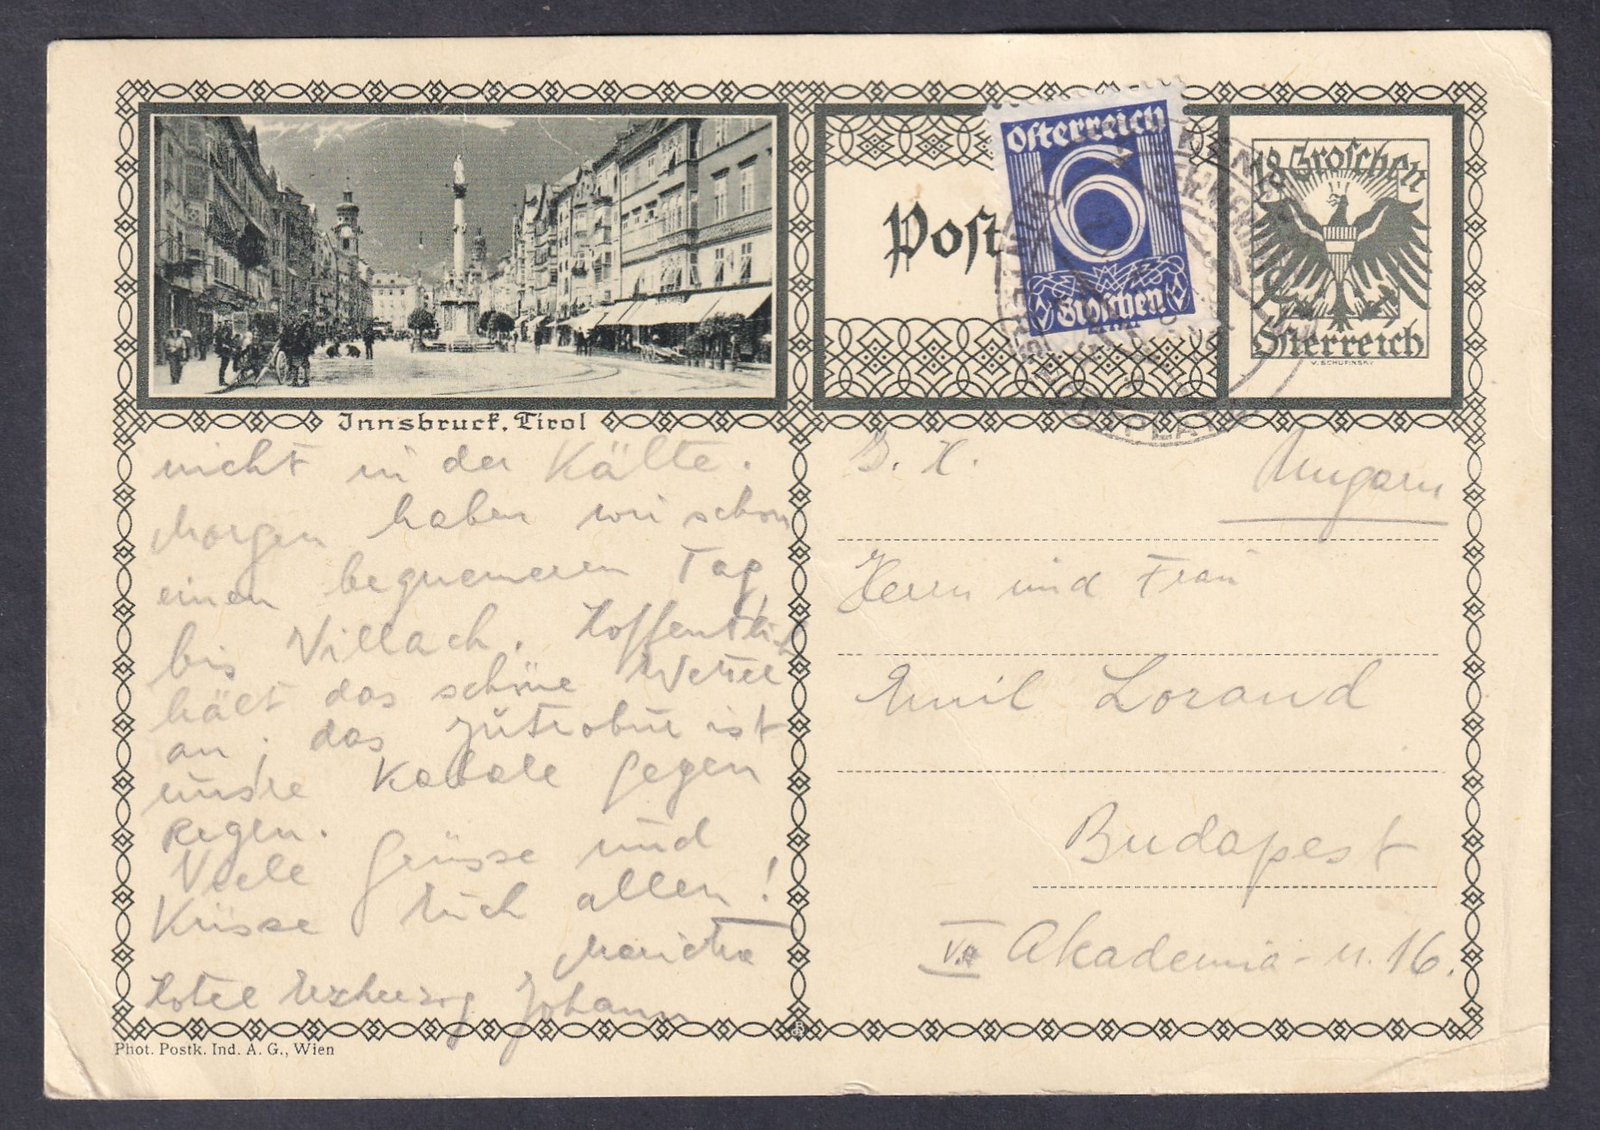 Innsbruck, Tirol
nicht in der Kälte.
Morgen haben wir schon
einen bequemeren Tag,
bis Villach. Hoffentlich
hält das schöne Wetter
an; das ist
unsre gegen
Regen.
Viele Grüsse und
Küsse Euch allen!
Hotel Erzherzog Johann
Phot. Postk. Ind. A. G., Wien
Post
Österreich
6
Groschen
18 Groschen
Österreich
V. SCHUFINSKY
Ungarn
Herrn und Frau
Emil Lorand
Budapest
Akademia-u. 16.